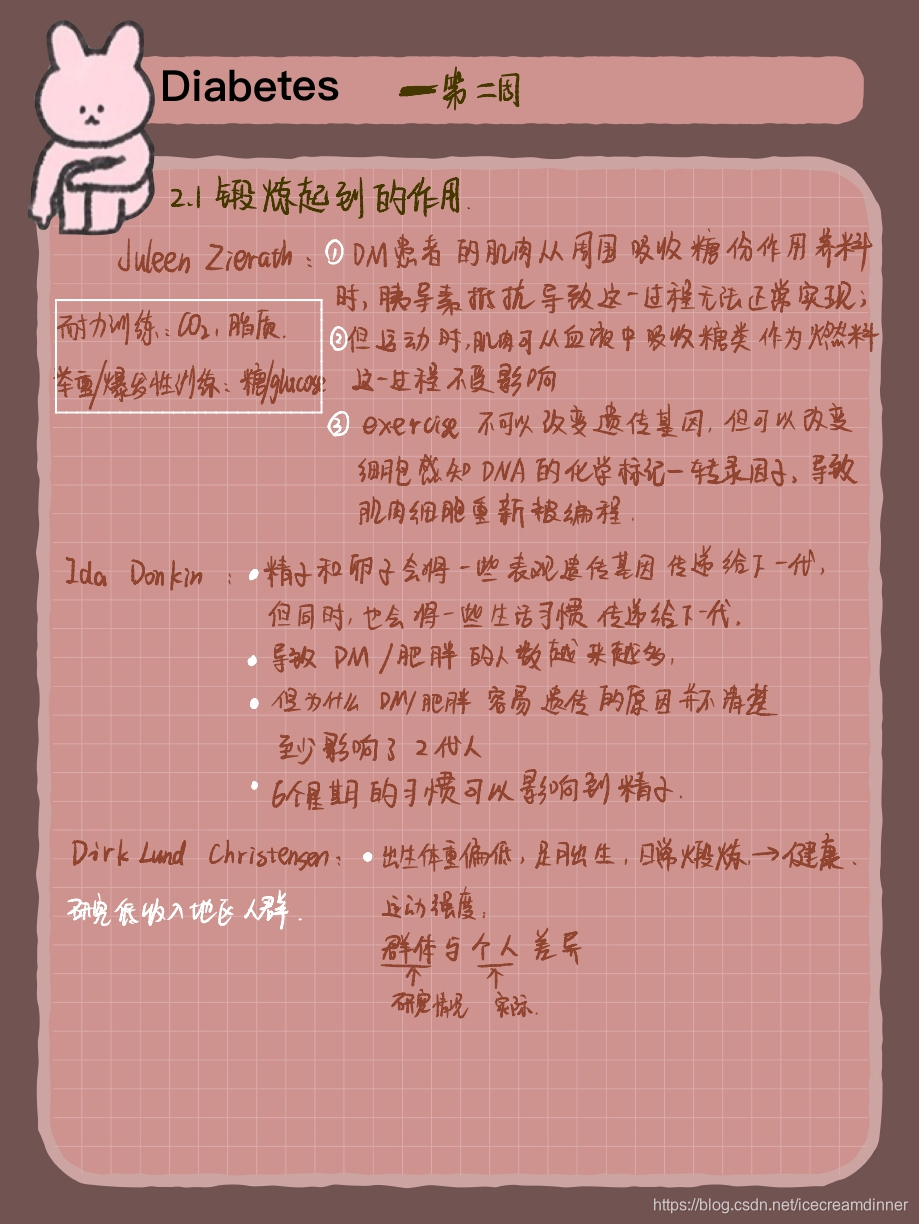 Diabetes —第二周
2.1 锻炼起到的作用.
Juleen Zierath: ① DM患者的肌肉从周围吸收糖份作用养料
时, 胰导素抵抗导致这一过程无法正常实现;
耐力训练: CO2, 脂质.
②但运动时, 肌肉可从血液中吸收糖类作为燃料
举重/爆发性训练: 糖/glucose
这一过程不受影响
③ exercise 不可以改变遗传基因, 但可以改变
细胞感知DNA的化学标记—转录因子, 导致
肌肉细胞重新被编程.
Ida Donkin: • 精子和卵子会将一些表观遗传基因传递给下一代,
但同时, 也会将一些生活习惯传递给下一代.
• 导致 DM/肥胖的人数越来越多,
• 但为什么 DM/肥胖容易遗传的原因并不清楚
至少影响了2代人
• 6个星期的习惯可以影响到精子.
Dirk Lund Christensen: • 出生体重偏低, 足月出生, 日常煅炼→健康.
研究低收入地区人群.
运动强度;
群体与个人差异
↑ ↑
研究情况 实际.
https://blog.csdn.net/icecreamdinner